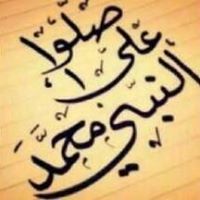 صلوا
على
النبي محمد